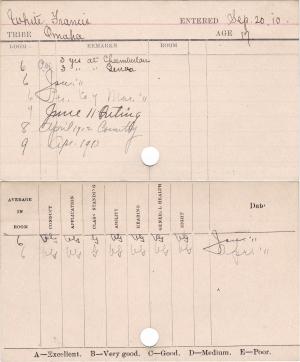 White, Francis ENTERED Sep. 20, 10.
TRIBE Omaha AGE 17
ROOM REMARKS ROOM
6 3 yrs at Chamberlain
3 " " Genoa
6 Jan '11
6 Mar. '11
7 June 11 Outing
8 April 1912 Country
9 Sept. 1913
AVERAGE IN ROOM CONDUCT APPLICATION CLASS STANDING ABILITY HEARING GENERAL HEALTH SIGHT Date
6 VG VG G VG VG VG VG Jan '11
6 VG VG G VG VG VG VG
A—Excellent. B—Very good. C—Good. D—Medium. E—Poor.